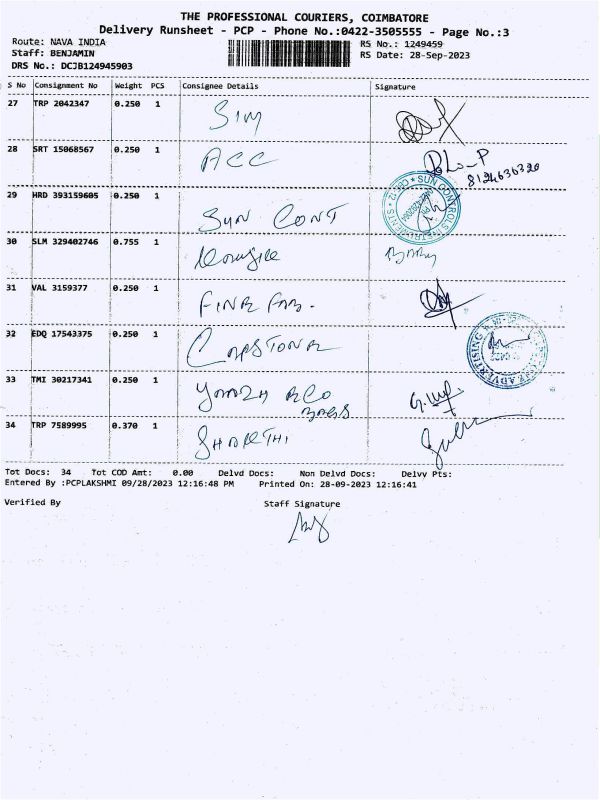 THE PROFESSIONAL COURIERS, COIMBATORE
Delivery Runsheet - PCP - Phone No.:0422-3505555 - Page No.:3
Route: NAVA INDIA
RS No.: 1249459
Staff: BENJAMIN
RS Date: 28-Sep-2023
DRS No.: DCJB124945903
S No Consignment No Weight PCS Consignee Details Signature
27 TRP 2042347 0.250 1 SIM
28 SRT 15068567 0.250 1 ACC
8124636320
29 HRD 393159605 0.250 1 SUN CONT
SUN CONTROLS INSTRUMENTS
30 SLM 329402746 0.755 1
31 VAL 3159377 0.250 1 FINE FAB.
32 EDQ 17543375 0.250 1 CAPSTONE
ADVERTISING
33 TMI 30217341 0.250 1 ECO
BAGS
34 TRP 7589995 0.370 1
Tot Docs: 34 Tot COD Amt: 0.00 Delvd Docs: Non Delvd Docs: Delvy Pts:
Entered By :PCPLAKSHMI 09/28/2023 12:16:48 PM Printed On: 28-09-2023 12:16:41
Verified By Staff Signature